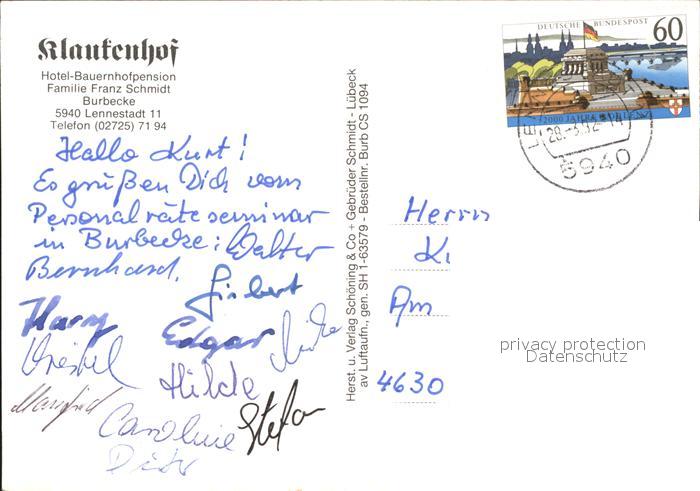 Klaukenhof
Hotel-Bauernhofpension
Familie Franz Schmidt
Burbecke
5940 Lennestadt 11
Telefon (02725) 71 94
Hallo Kurt!
Es grüßen Dich vom
Personalräteseminar
in Burbecke: Walter
Bernhard,
Harry
Edgar
Hilde
Manfred
Caroline
Stefan
Herst. u. Verlag Schöning & Co + Gebrüder Schmidt - Lübeck
av Luftaufn., gen. SH 1-63579 - Bestellnr.: Burb CS 1094
DEUTSCHE BUNDESPOST
60
2000 JAHRE KOBLENZ
28.-3.92-14
5940
Herrn
Am
4630
privacy protection
Datenschutz